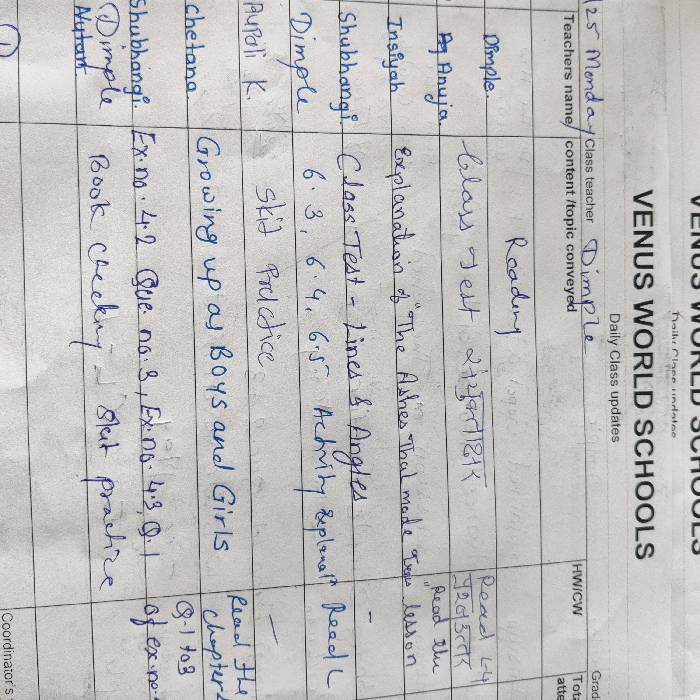 VENUS WORLD SCHOOLS
Daily Class updates
VENUS WORLD SCHOOLS
Daily Class updates
Grad
/25 Monday Class teacher Dimple
Teachers name content /topic conveyed HW/CW Tota
atte
Dimple. Reading
Anuja. Class Test Read 1-4
Insiyah Explanation of "The Ashes That made Trees" lesson Read the
Shubhangi. Class Test - Lines & Angles -
Dimple 6.3, 6.4, 6.5 Activity Explanatn Read L
Rupali K. Skit Practice —
chetana. Growing up as Boys and Girls Read the
chapter
Q.1 to 3
Shubhangi. Ex.no. 4.2 Que no. 3, Ex.no. 4.3, Q.1 of ex.no
Dimple Book checking - Skit practice
Nutan
1
Coordinator's